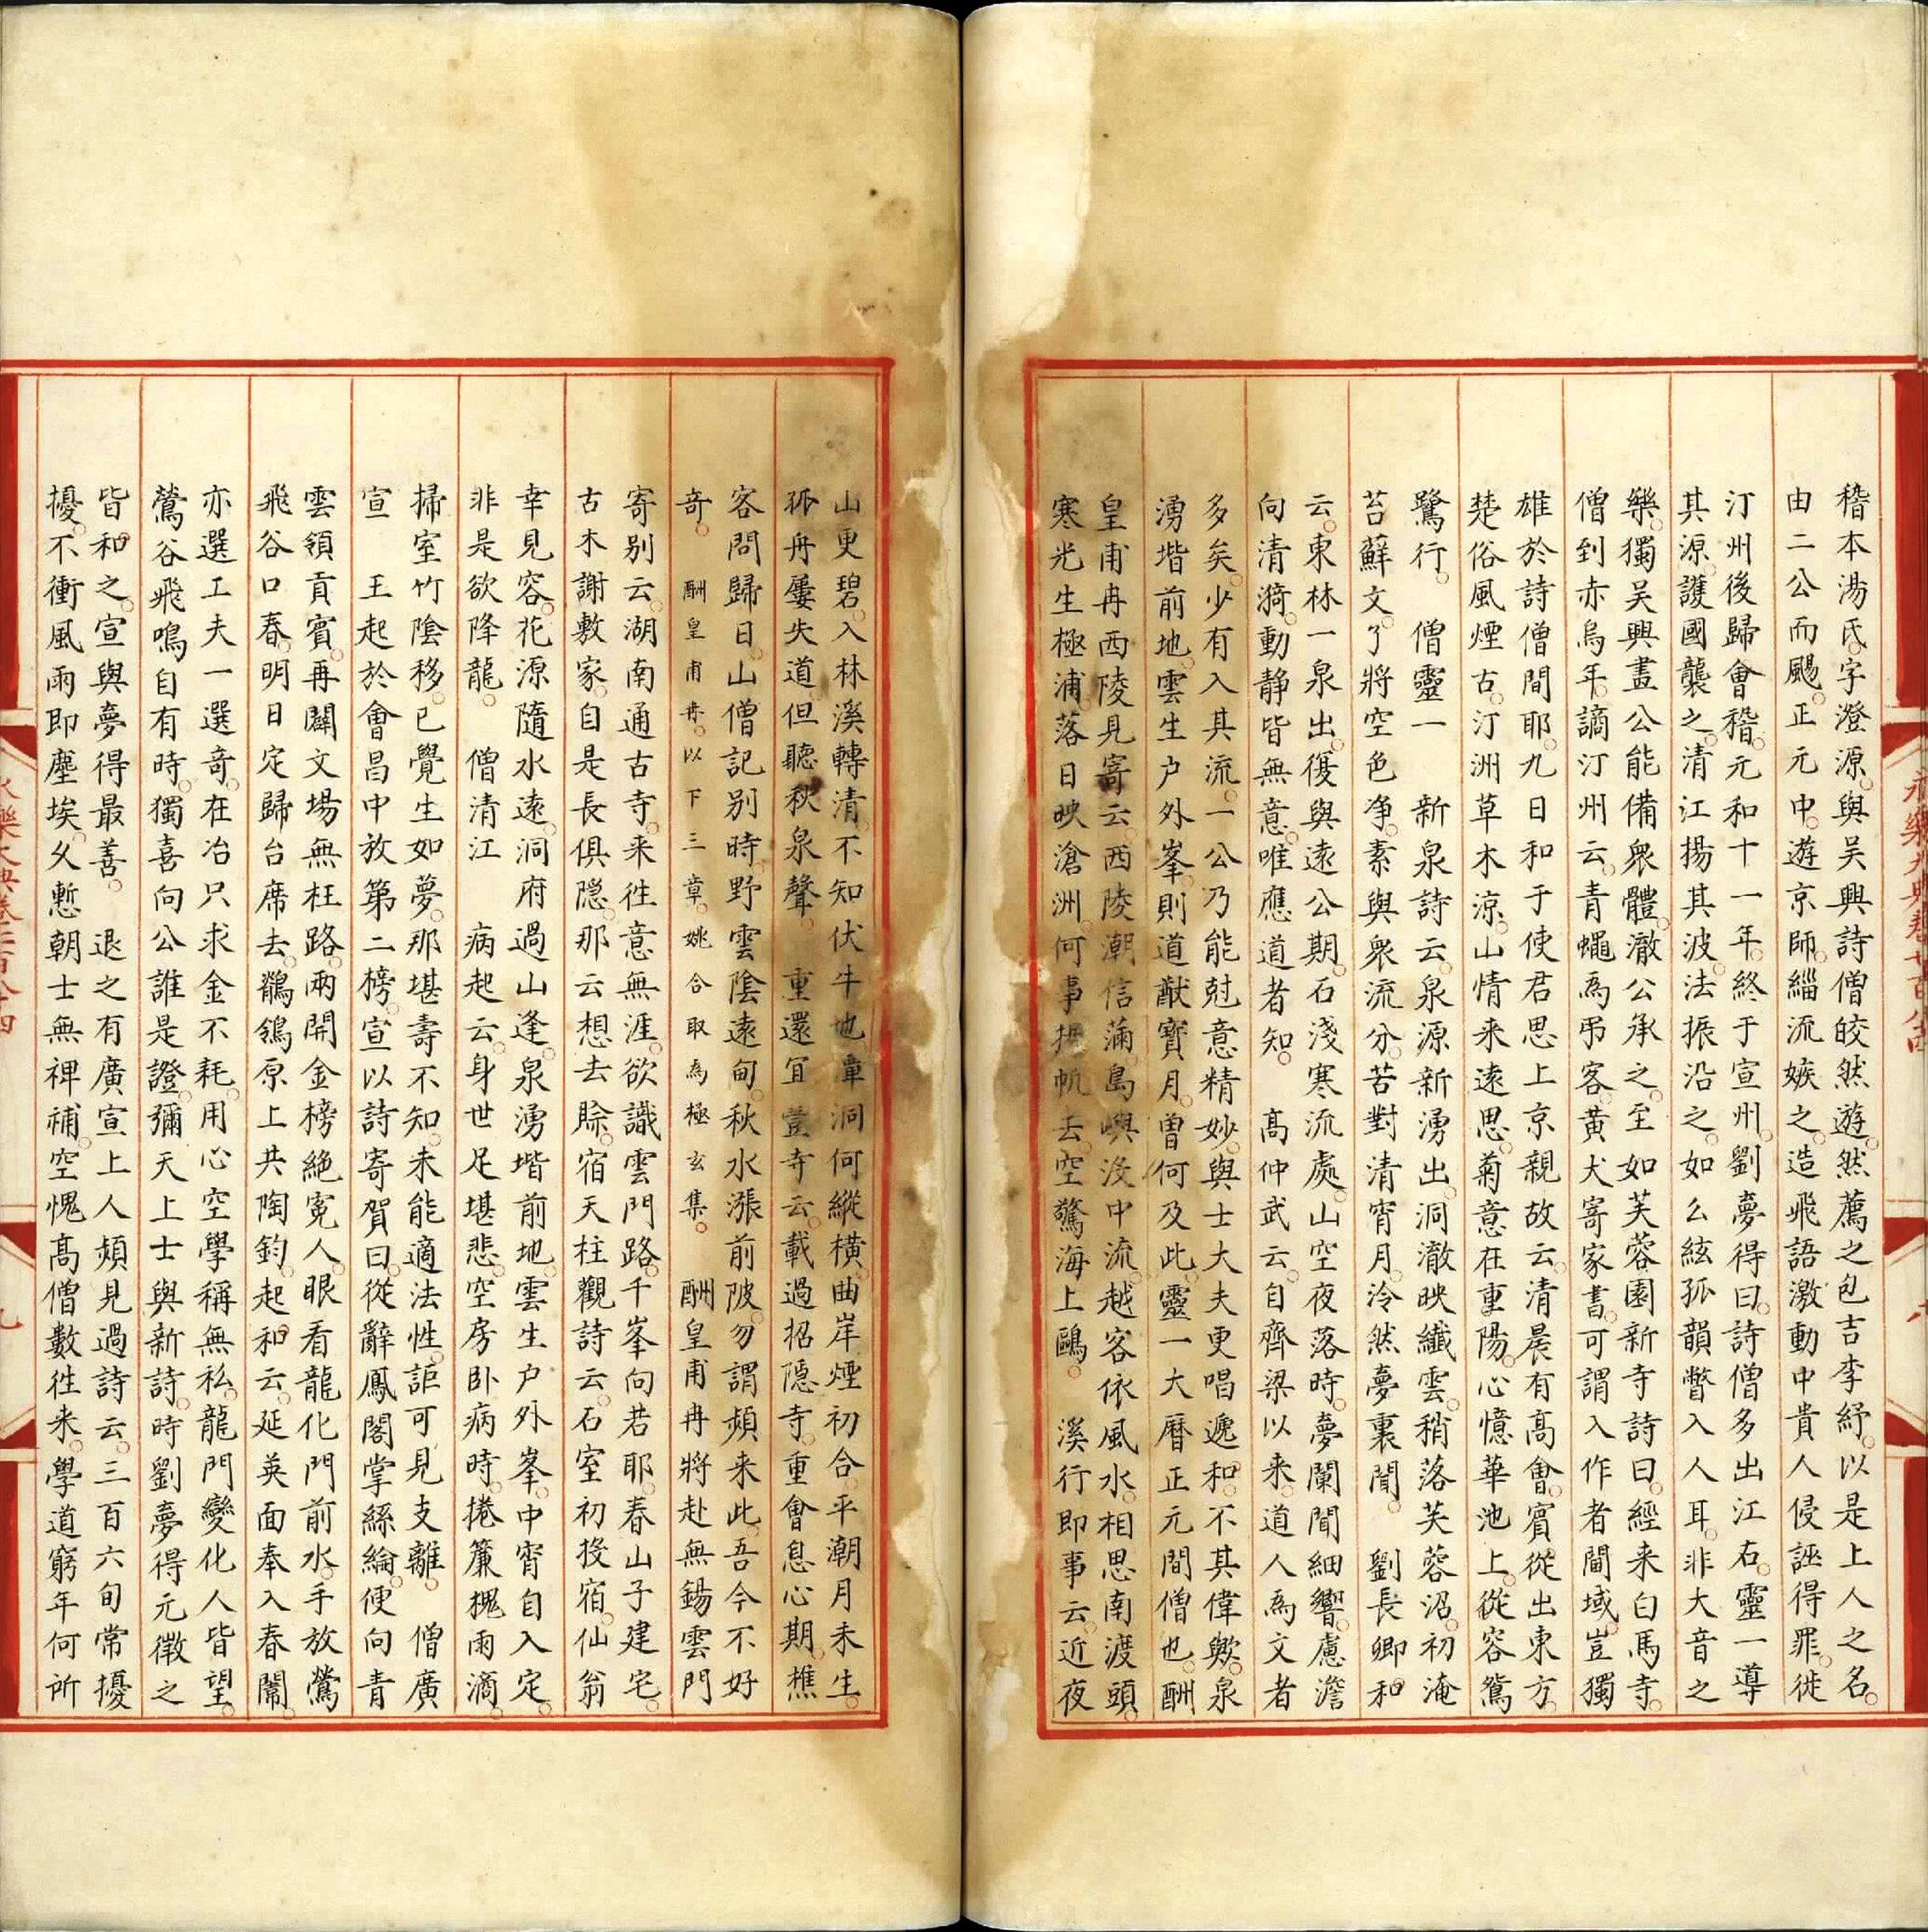 稽本湯氏字澄源與吴興詩僧皎然遊然薦之包吉李紓以是上人之名
由二公而颺正元中遊京師緇流嫉之造飛語激動中貴人侵誣得罪徙
汀州後歸會稽元和十一年終于宣州劉夢得曰詩僧多出江右靈一導
其源護國襲之清江揚其波法振沿之如么絃孤韻瞥入人耳非大音之
樂獨吴興晝公能備衆體澈公承之至如芙蓉園新寺詩曰經来白馬寺
僧到赤烏年謫汀州云青蠅為弔客黄犬寄家書可謂入作者閫域豈獨
雄於詩僧間耶九日和于使君思上京親故云清晨有高會賓從出東方
楚俗風煙古汀洲草木涼山情来遠思菊意在重陽心憶華池上從容鴛
鷺行 僧靈一 新泉詩云泉源新湧出洞澈映纖雲稍落芙蓉沼初淹
苔蘚文了將空色净素與衆流分苦對清宵月泠然夢裏聞 劉長卿和
云東林一泉出復與遠公期石淺寒流處山空夜落時夢闌聞細響慮澹
向清漪動静皆無意唯應道者知 高仲武云自齊梁以来道人為文者
多矣少有入其流一公乃能尅意精妙與士大夫更唱遞和不其偉歟泉
湧堦前地雲生户外峯則道猷寶月曽何及此靈一大曆正元間僧也酬
皇甫冉西陵見寄云西陵潮信滿島嶼没中流越客依風水相思南渡頭
寒光生極浦落日映滄洲何事揚帆去空驚海上鷗 溪行即事云近夜
山更碧入林溪轉清不知伏牛地潭洞何縱横曲岸煙初合平潮月未生
孤舟屢失道但聽秋泉聲 重還宜豐寺云載過招隠寺重會息心期樵
客問歸日山僧記别時野雲陰遠甸秋水漲前陂勿謂頻来此吾今不好
竒 酬皇甫冉以下三章姚合取為極玄集 酬皇甫冉將赴無錫雲門
寄别云湖南通古寺来往意無涯欲識雲門路千峯向若耶春山子建宅
古木謝敷家自是長俱隠那云想去賒宿天柱觀詩云石室初投宿仙翁
幸見容花源隨水遠洞府過山逢泉湧堦前地雲生户外峯中宵自入定
非是欲降龍 僧清江 病起云身世足堪悲空房卧病時捲簾槐雨滴
掃室竹陰移已覺生如夢那堪壽不知未能適法性詎可見支離 僧廣
宣 王起於會昌中放第二榜宣以詩寄賀曰從辭鳳閣掌絲綸便向青
雲領貢賓再闢文場無枉路兩開金榜絶寃人眼看龍化門前水手放鶯
飛谷口春明日定歸台席去鶺鴒原上共陶鈞起和云延英面奉入春闈
亦選工夫一選竒在冶只求金不耗用心空學稱無私龍門變化人皆望
鶯谷飛鳴自有時獨喜向公誰是證彌天上士與新詩時劉夢得元微之
皆和之宣與夢得最善 退之有廣宣上人頻見過詩云三百六旬常擾
擾不衝風雨即塵埃久慙朝士無裨補空愧髙僧數往来學道窮年何所